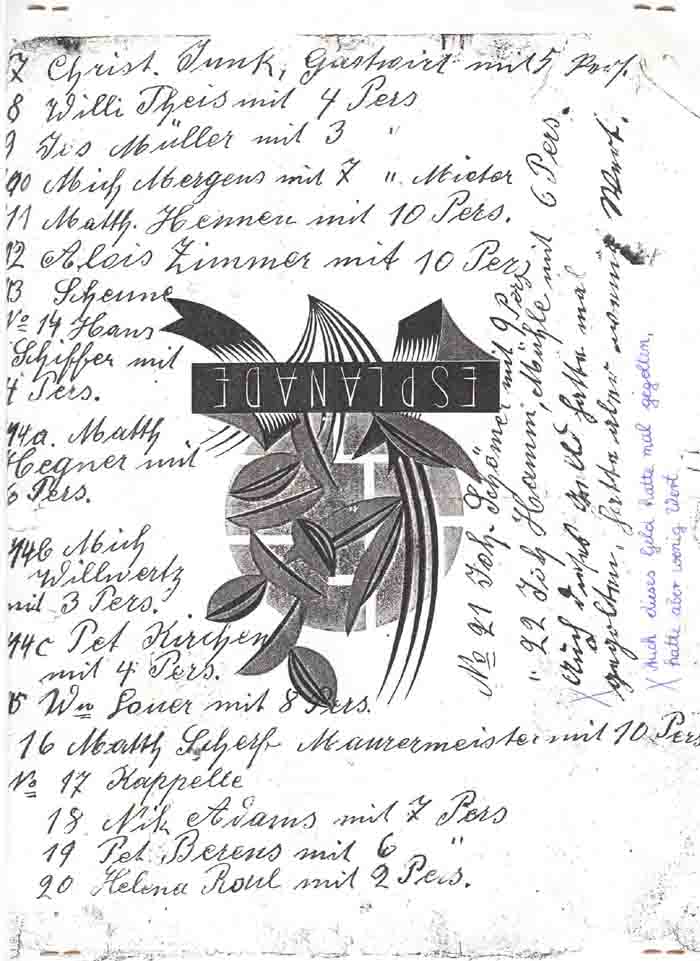 7 Christ. Junk, Gastwirt mit 5 Pers.
8 Willi Theis mit 4 Pers
9 Jos Müller mit 3 "
10 Mich Mergens mit 7 " Mieter
11 Matth. Hennen mit 10 Pers.
12 Alois Zimmer mit 10 Pers
13 Scheune
No 14 Hans
Schiffer mit
4 Pers.
14a. Matth
Hegner mit
6 Pers.
14b Mich
Willwertz
mit 3 Pers.
14c Pet Kirchen
mit 4 Pers.
15 Ww Louer mit 8 Pers.
16 Matth Scherf Maurermeister mit 10 Pers
No 17 Kappelle
18 Nik Adams mit 7 Pers
19 Pet Berens mit 6 "
20 Helena Roul mit 2 Pers.
ESPLANADE
No 21 Joh. Schömer mit 9 Pers
" 22 Joh Hamm, Mühle mit 6 Pers.
Auch dieses Geld hatte mal
X gegolten, hatte aber wenig Wert.
X Auch dieses Geld hatte mal gegolten,
hatte aber wenig Wert